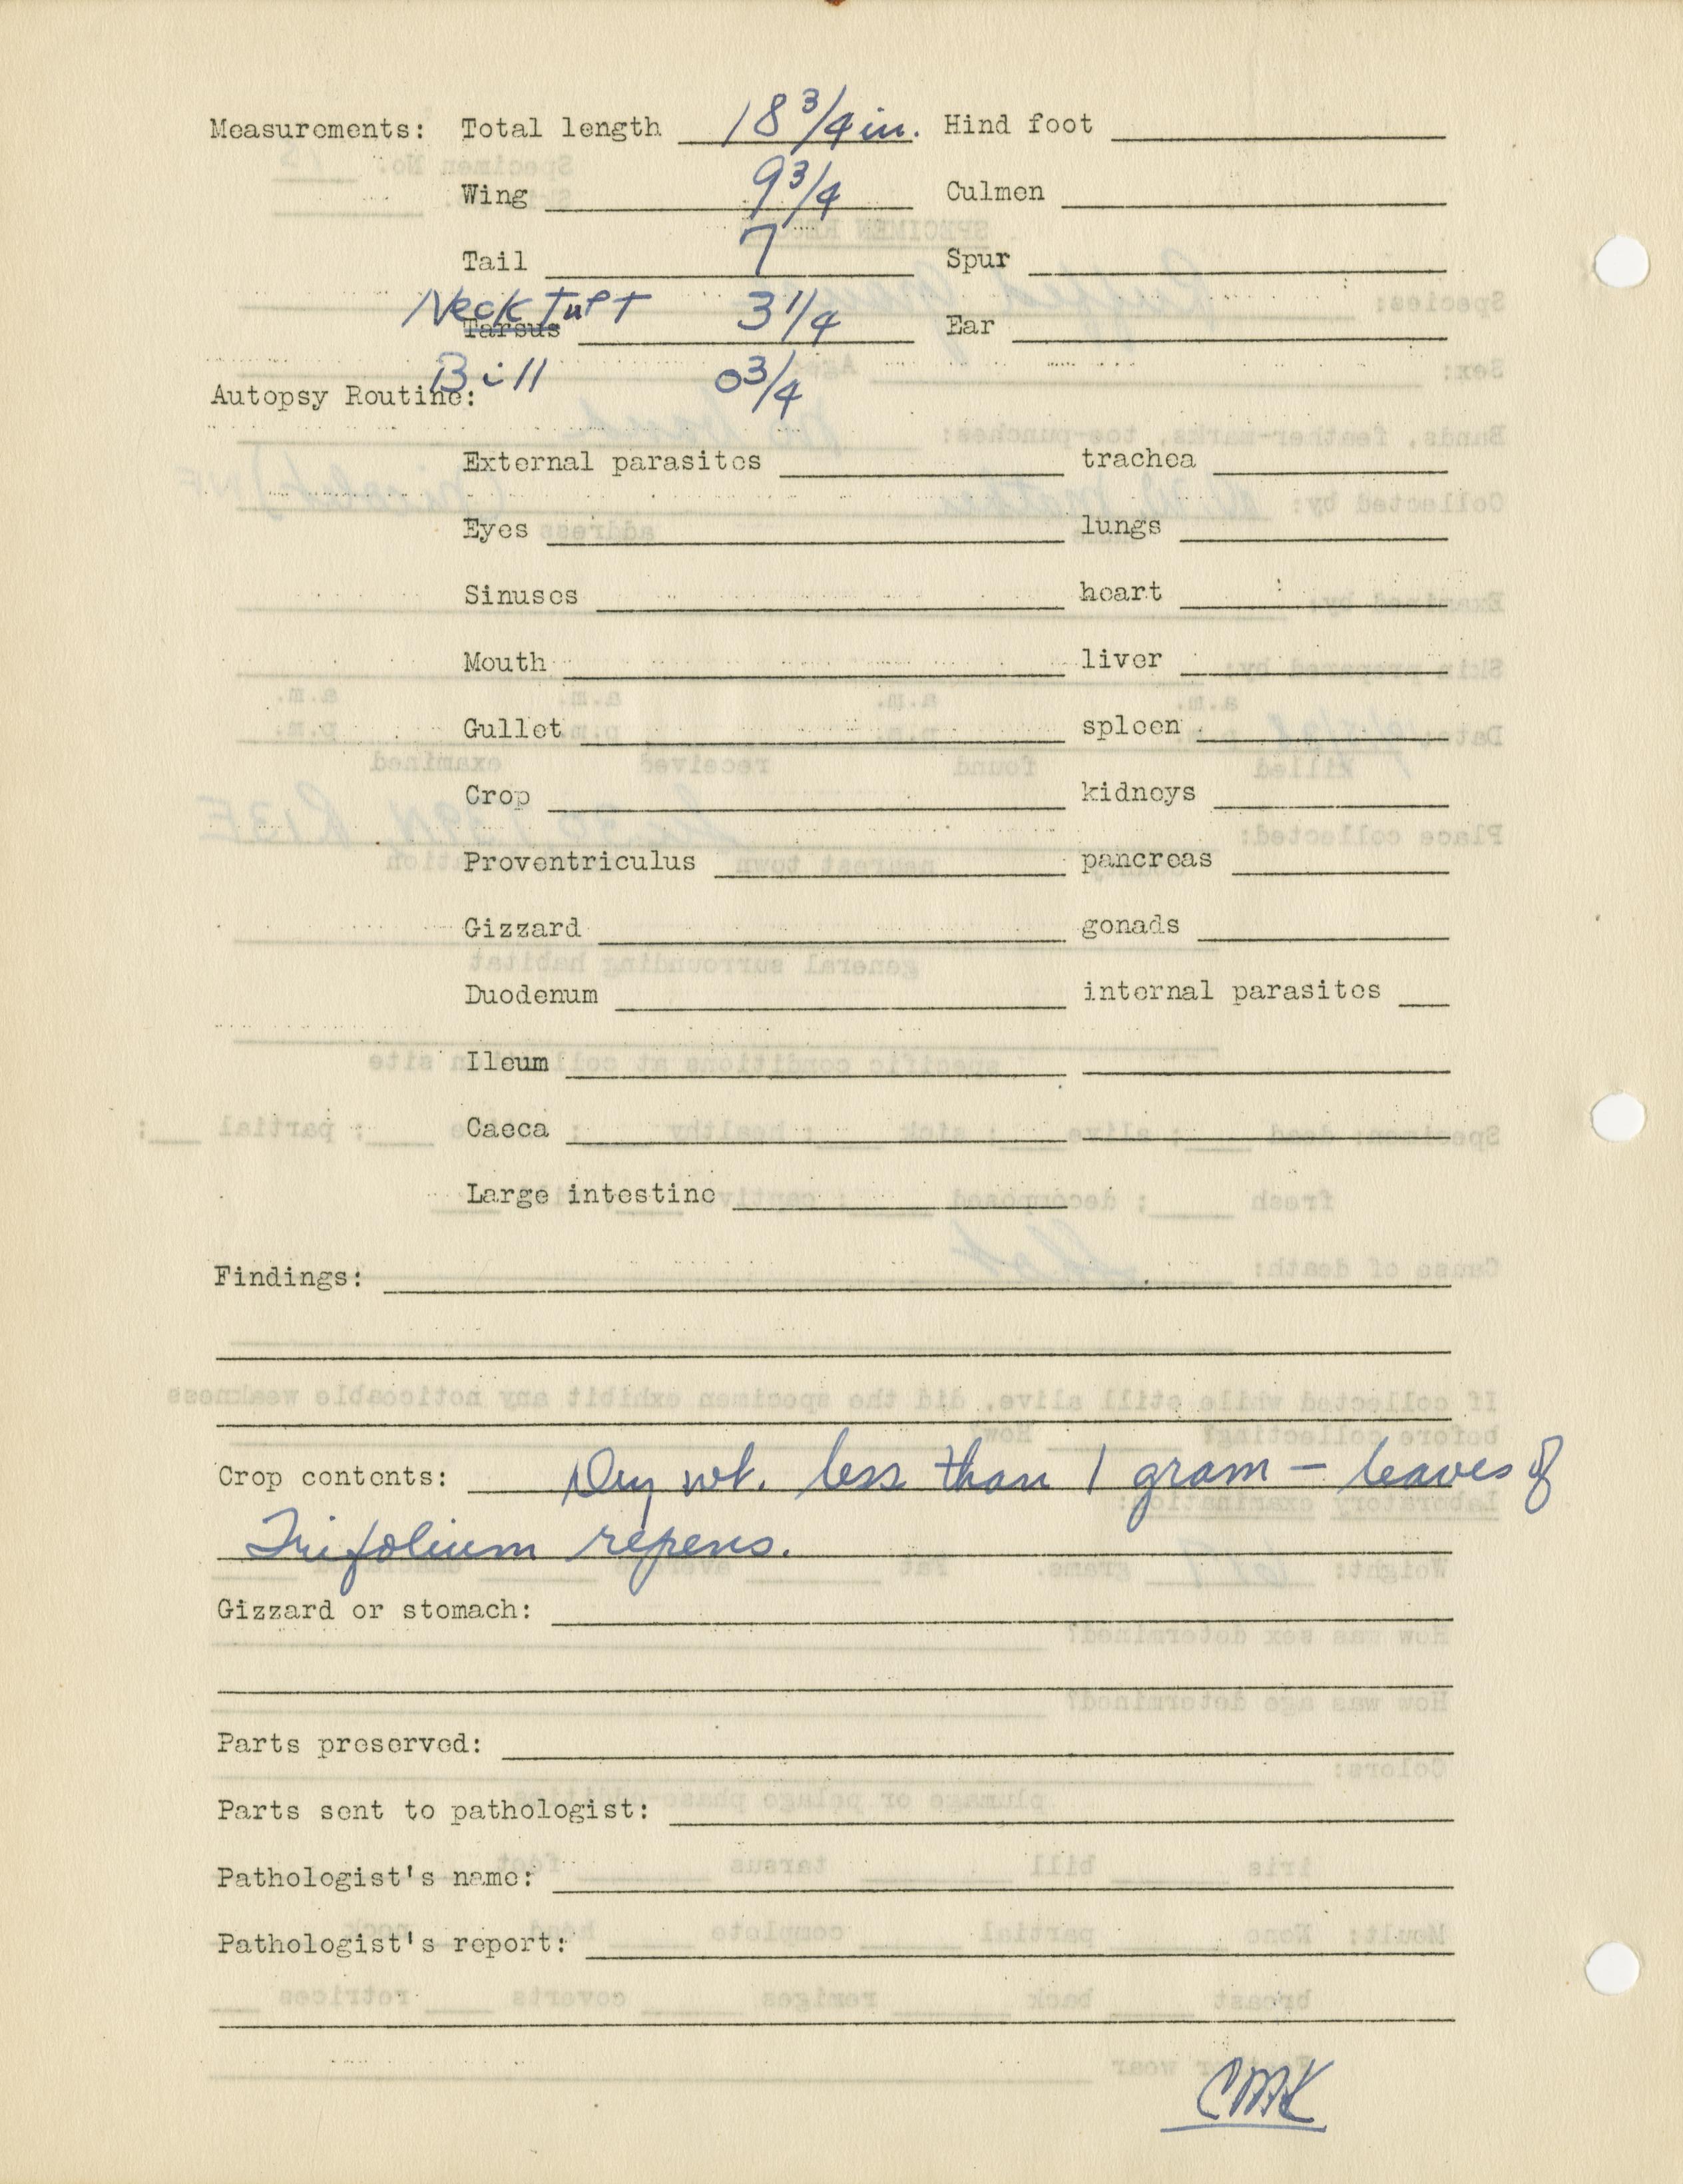 Measurements: Total length 18 3/4 in. Hind foot
Wing 9 3/4 Culmen
Tail 7 Spur
Neck Tuft
Tarsus 3 1/4 Ear
Bill 0 3/4
Autopsy Routine:
External parasites trachea
Eyes lungs
Sinuses heart
Mouth liver
Gullet spleen
Crop kidneys
Proventriculus pancreas
Gizzard gonads
Duodenum internal parasites
Ileum
Caeca
Large intestine
Findings:
Crop contents: Dry wt. less than 1 gram — leaves of
Trifolium repens.
Gizzard or stomach:
Parts preserved:
Parts sent to pathologist:
Pathologist's name:
Pathologist's report:
CMK